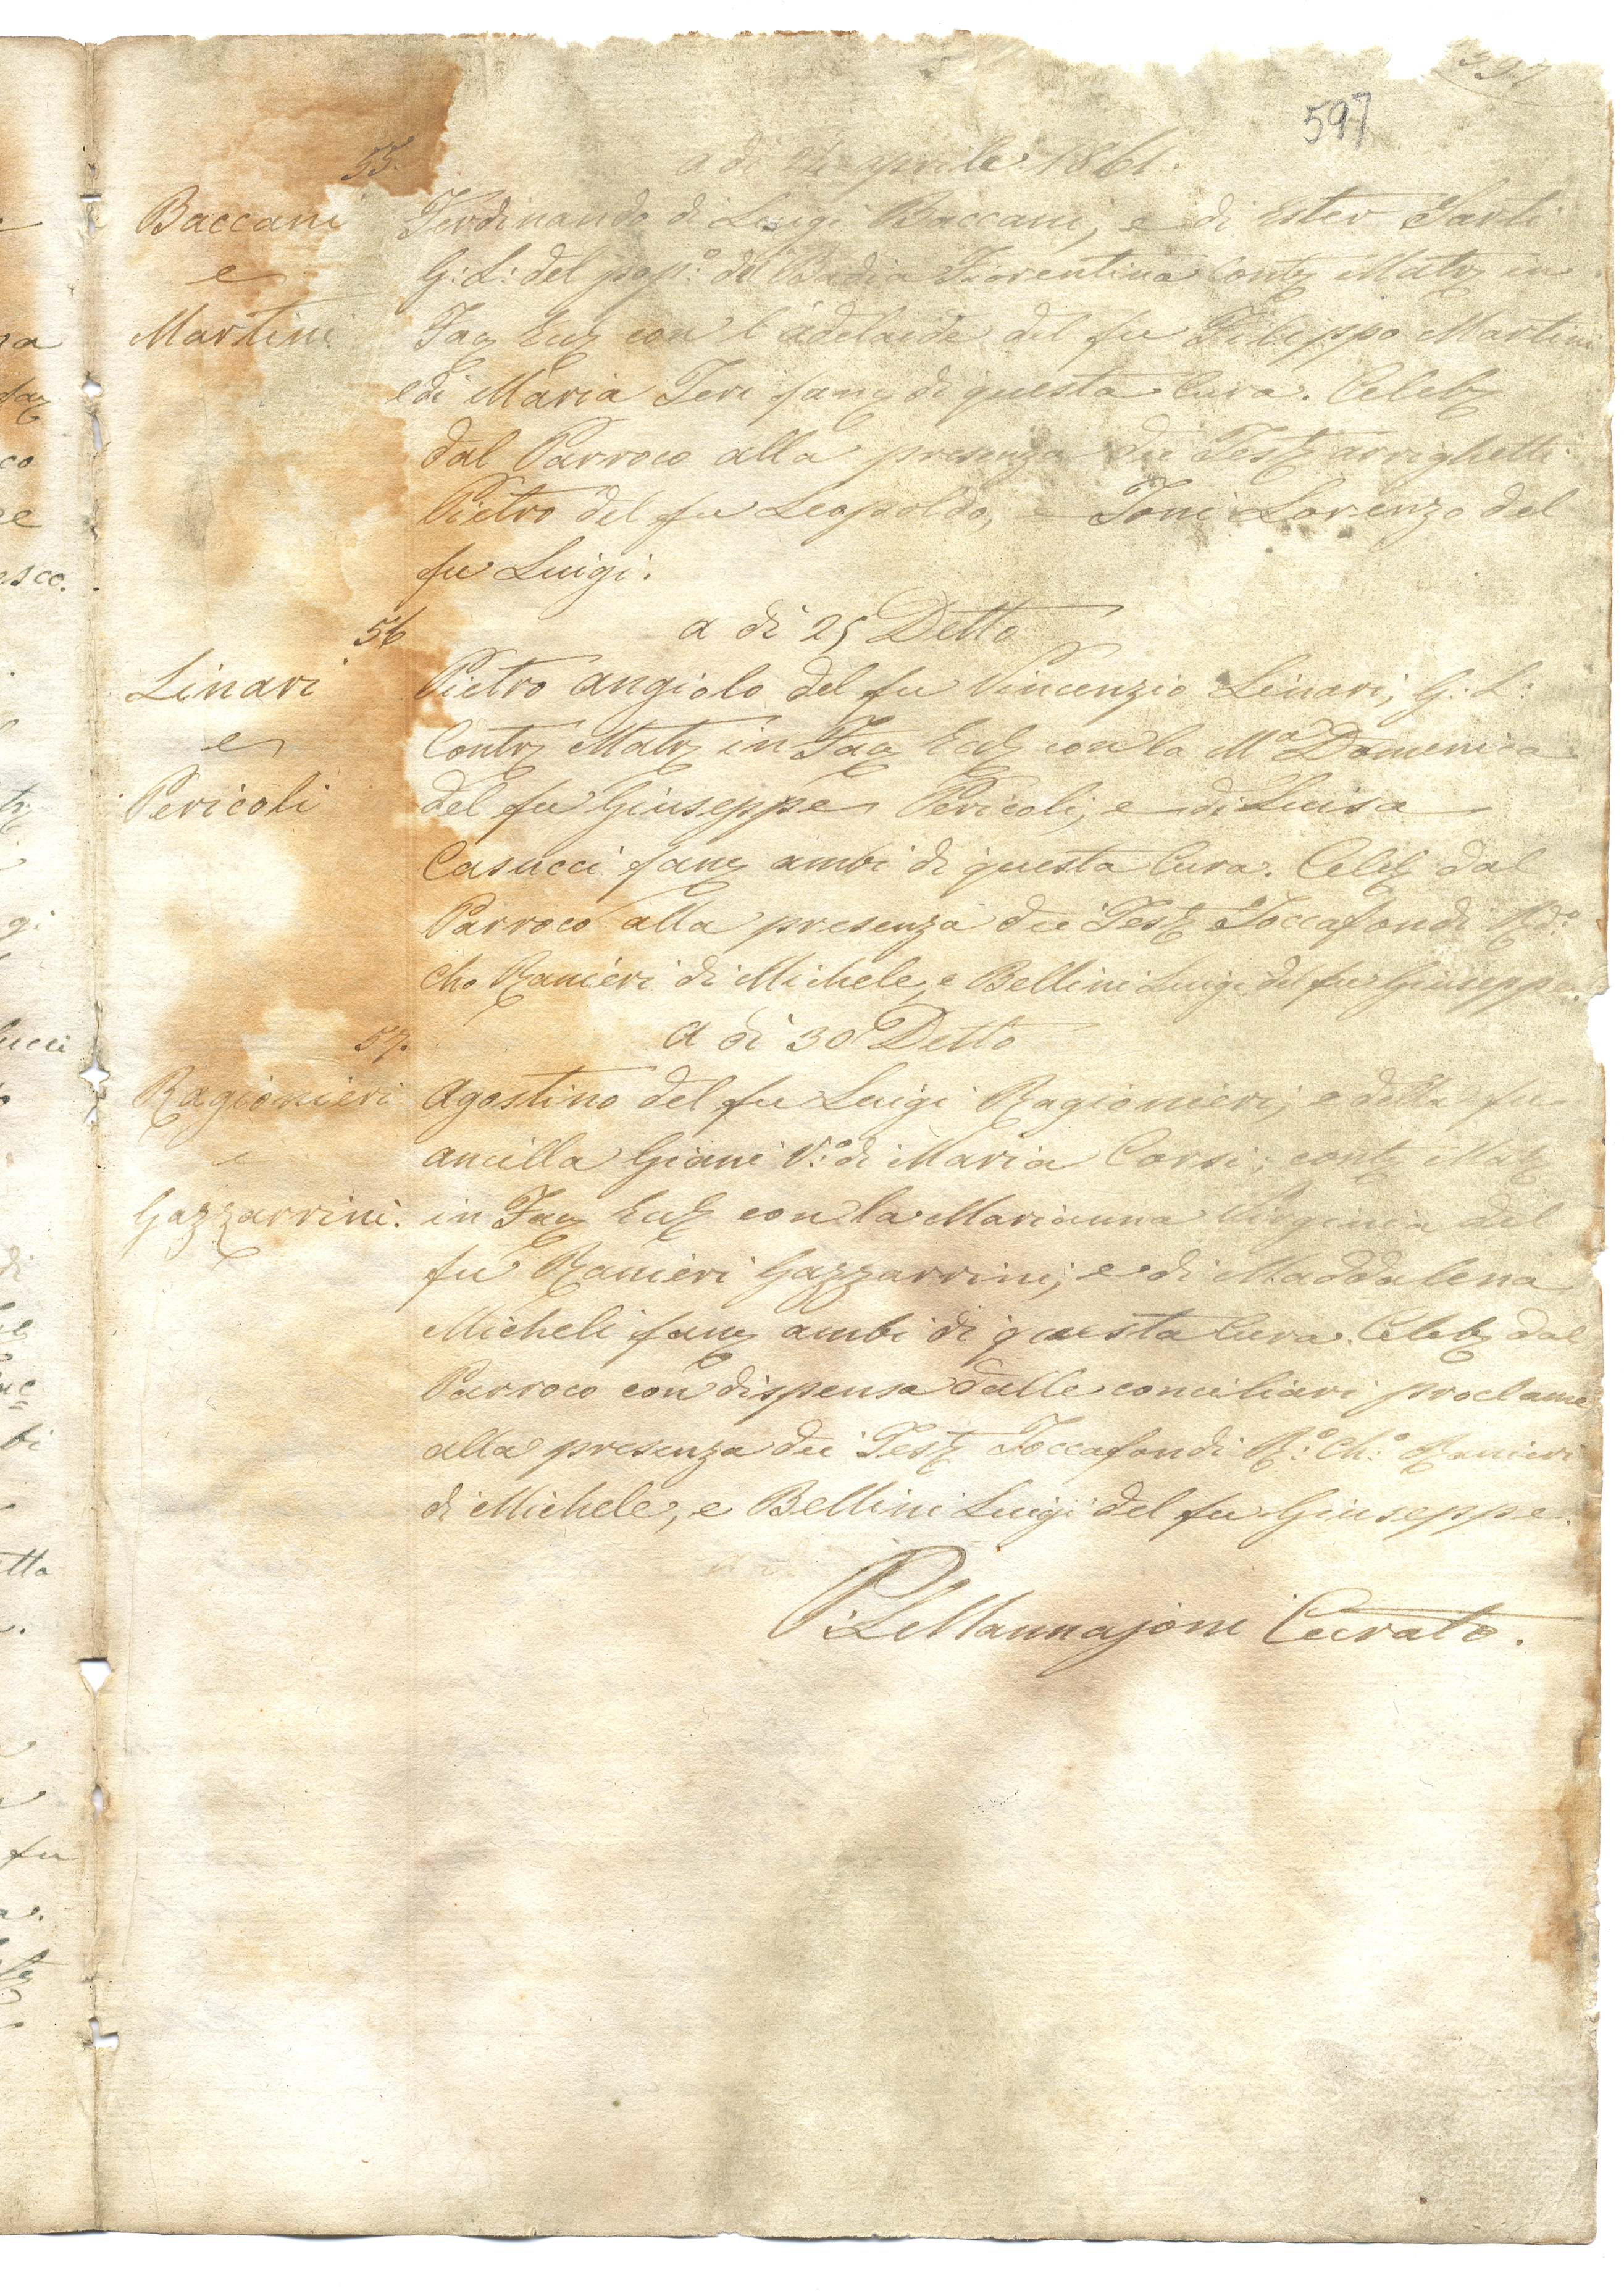 597
597
55.
a di aprile 1861.
Baccani
e
Martini
Ferdinando di Luigi Baccani, e di Ester Sarti
G: L: del pop:° di Badia Fiorentina Contr Matr in
Fac Eccl con l'adelaide del fu Filippo Martini
e di Maria Teri fanc di questa Cura. Celeb
dal Parroco alla presenza dei Test arrighetti
Pietro del fu Leopoldo, e Toni Lorenzo del
fu Luigi.
56
a di 25 Detto
Linari
e
Pericoli
Pietro angiolo del fu Vincenzio Linari, G: L:
Contr Matr in Fac Eccl con la Mª Domenica
del fu Giuseppe Pericoli, e di Luisa
Casucci fanc ambi di questa Cura. Celeb dal
Parroco alla presenza dei Test Toccafondi Rd°:
Ch° Ranieri di Michele, e Bellini Luigi del fu Giuseppe.
57.
a di 30 Detto
Ragionieri
e
Gazzarrini.
Agostino del fu Luigi Ragionieri, e della fu
ancilla Giani V:° di Maria Corsi; contr Matr
in Fac Eccl con la Marianna Virginia del
fu Ranieri Gazzarrini, e di Maddalena
Micheli fanc ambi di questa Cura. Celeb dal
Parroco con dispensa dalle conciliari proclame
alla presenza dei Test Toccafondi R:° Ch:° Ranieri
di Michele, e Bellini Luigi del fu Giuseppe.
P: L Mannajoni Curato.